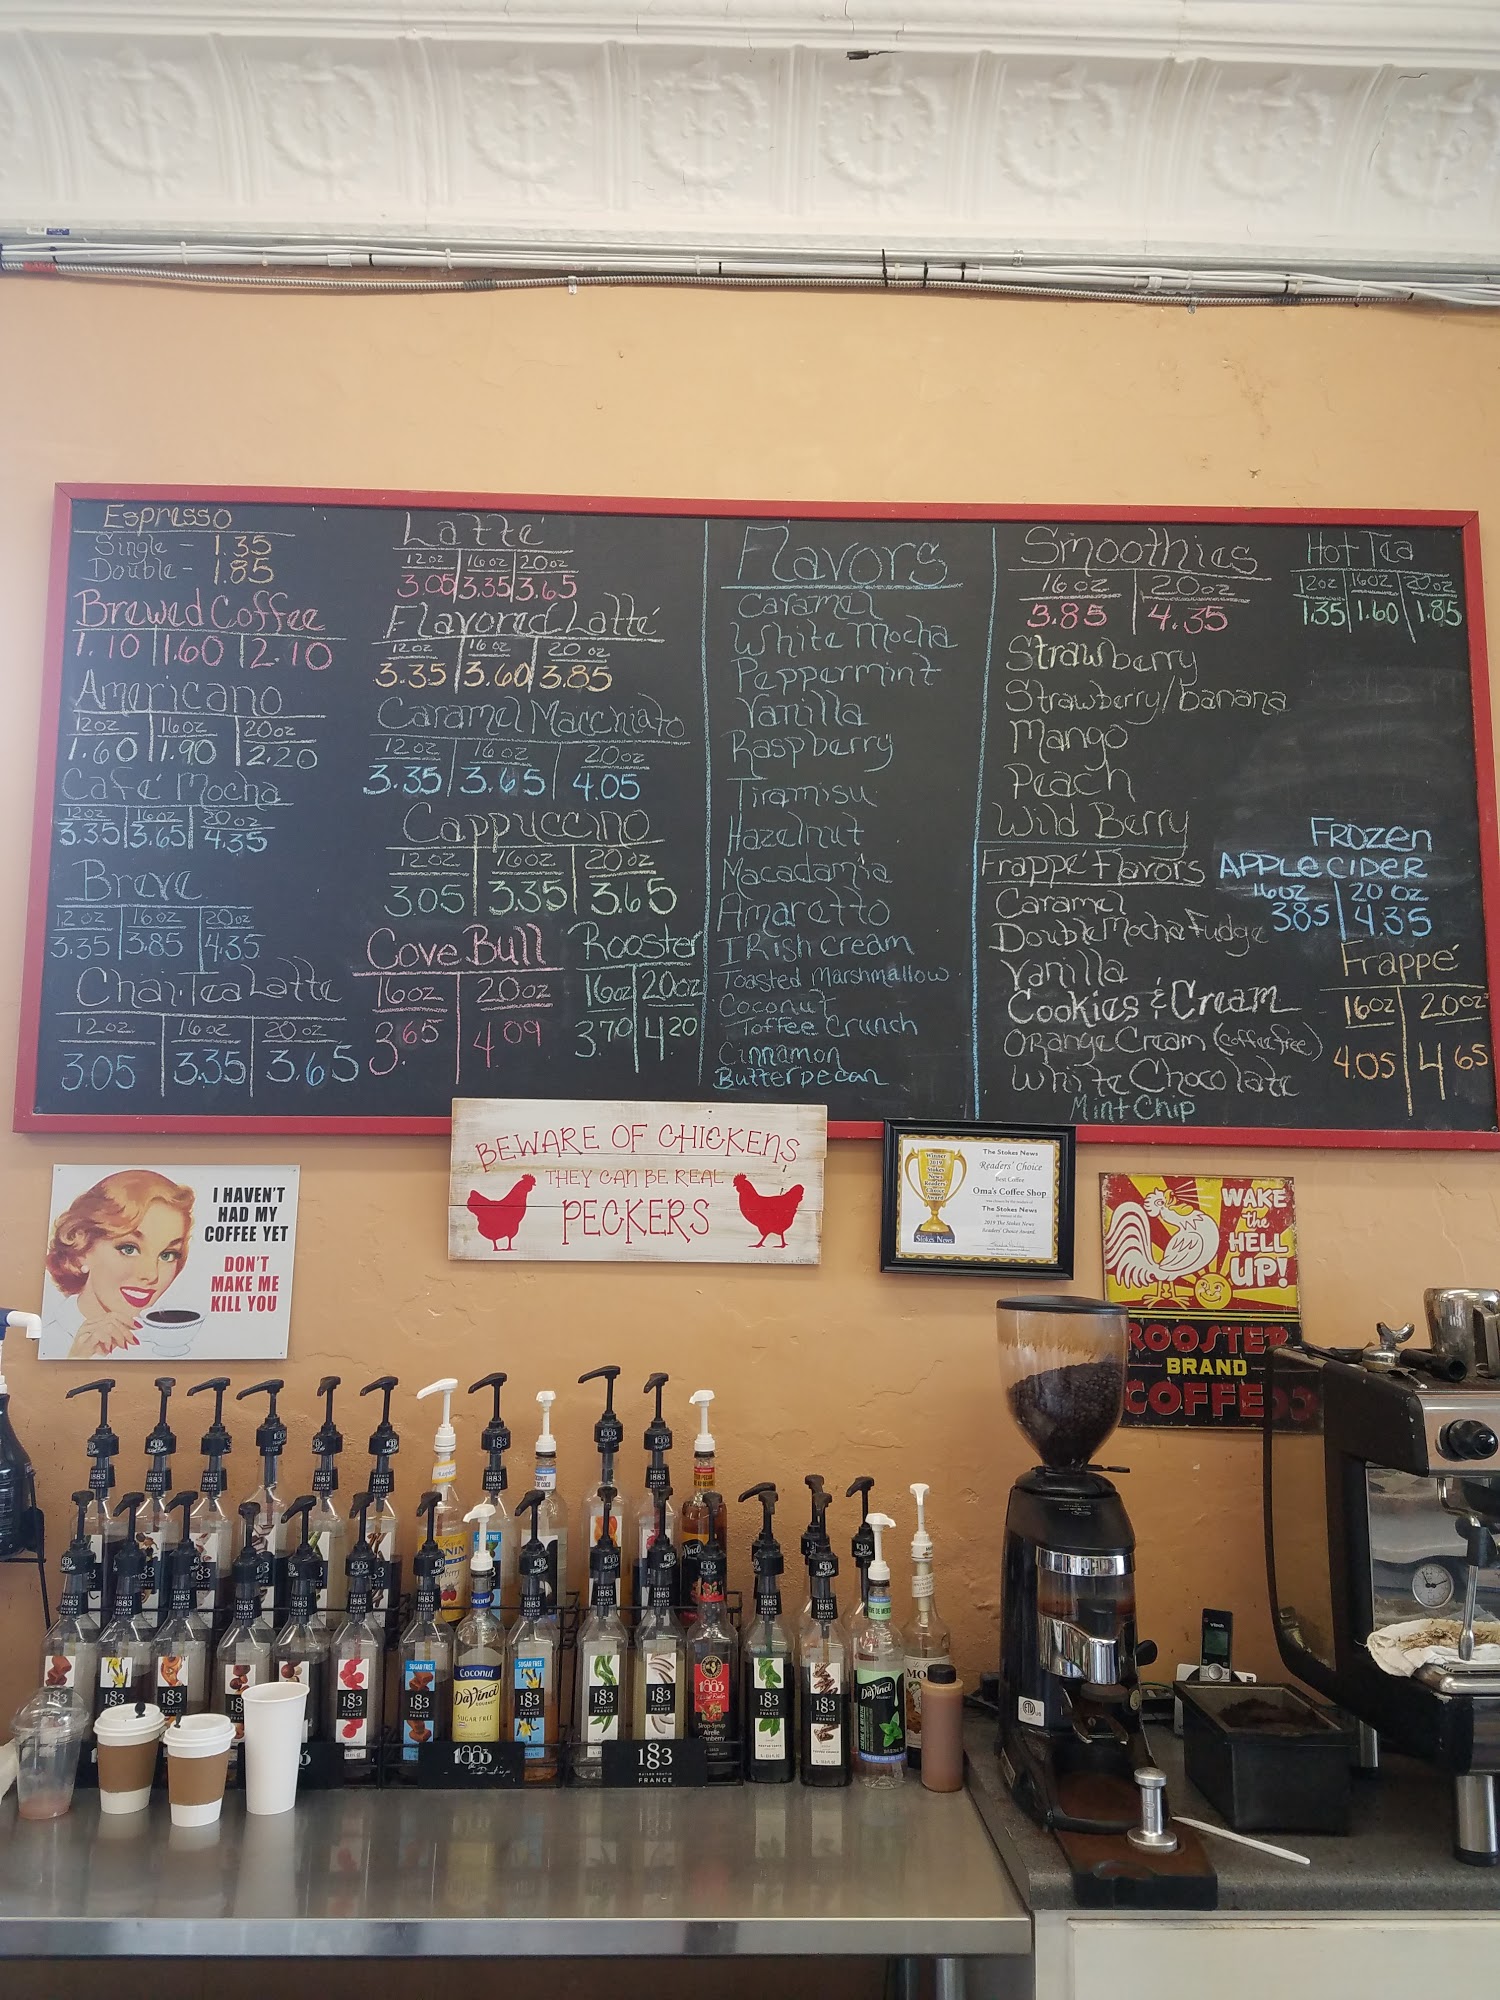 Espresso
Single - 1.35
Double - 1.85
Brewed Coffee
1.10 1.60 2.10
Americano
12oz 16oz 20oz
1.60 1.90 2.20
Café Mocha
12oz 16oz 20oz
3.35 3.65 4.35
Breve
12oz 16oz 20oz
3.35 3.85 4.35
Chai Tea Latte
12oz 16oz 20oz
3.05 3.35 3.65
Latté
12oz 16oz 20oz
3.05 3.35 3.65
Flavored Latté
12oz 16oz 20oz
3.35 3.60 3.85
Caramel Macchiato
12oz 16oz 20oz
3.35 3.65 4.05
Cappuccino
12oz 16oz 20oz
3.05 3.35 3.65
Cove Bull
16oz 20oz
3.65 4.09
Rooster
16oz 20oz
3.70 4.20
Flavors
Caramel
White Mocha
Peppermint
Vanilla
Raspberry
Tiramisu
Hazelnut
Macadamia
Amaretto
IRish cream
Toasted Marshmallow
Coconut
Toffee Crunch
Cinnamon
Butter pecan
Smoothies
16oz 20oz
3.85 4.35
Strawberry
Strawberry/banana
Mango
Peach
Wild Berry
Hot Tea
12oz 16oz 20oz
1.35 1.60 1.85
Frappé Flavors
Caramel
Double Mocha Fudge
Vanilla
Cookies & Cream
Orange Cream (coffee free)
White Chocolate
Mint Chip
FROZEN
APPLE CIDER
16oz 20 oz
3.85 4.35
Frappé
16oz 20oz
4.05 4.65
I HAVEN'T
HAD MY
COFFEE YET
DON'T
MAKE ME
KILL YOU
BEWARE OF CHICKENS
THEY CAN BE REAL
PECKERS
Winner
2019
Stokes
News
Readers
Choice
Award
Stokes News
The Stokes News
Readers' Choice
Best Coffee
Oma's Coffee Shop
The Stokes News
2019 The Stokes News
Readers' Choice Award.
WAKE
the
HELL
UP!
ROOSTER
BRAND
COFFEE
1883
1883
1883
SUGAR FREE
1883
FRANCE
Coconut
DaVinci
GOURMET
SUGAR FREE
SUGAR FREE
1883
FRANCE
1883
FRANCE
1883
FRANCE
1883
1883
1883
DaVinci
1883
1883
FRANCE